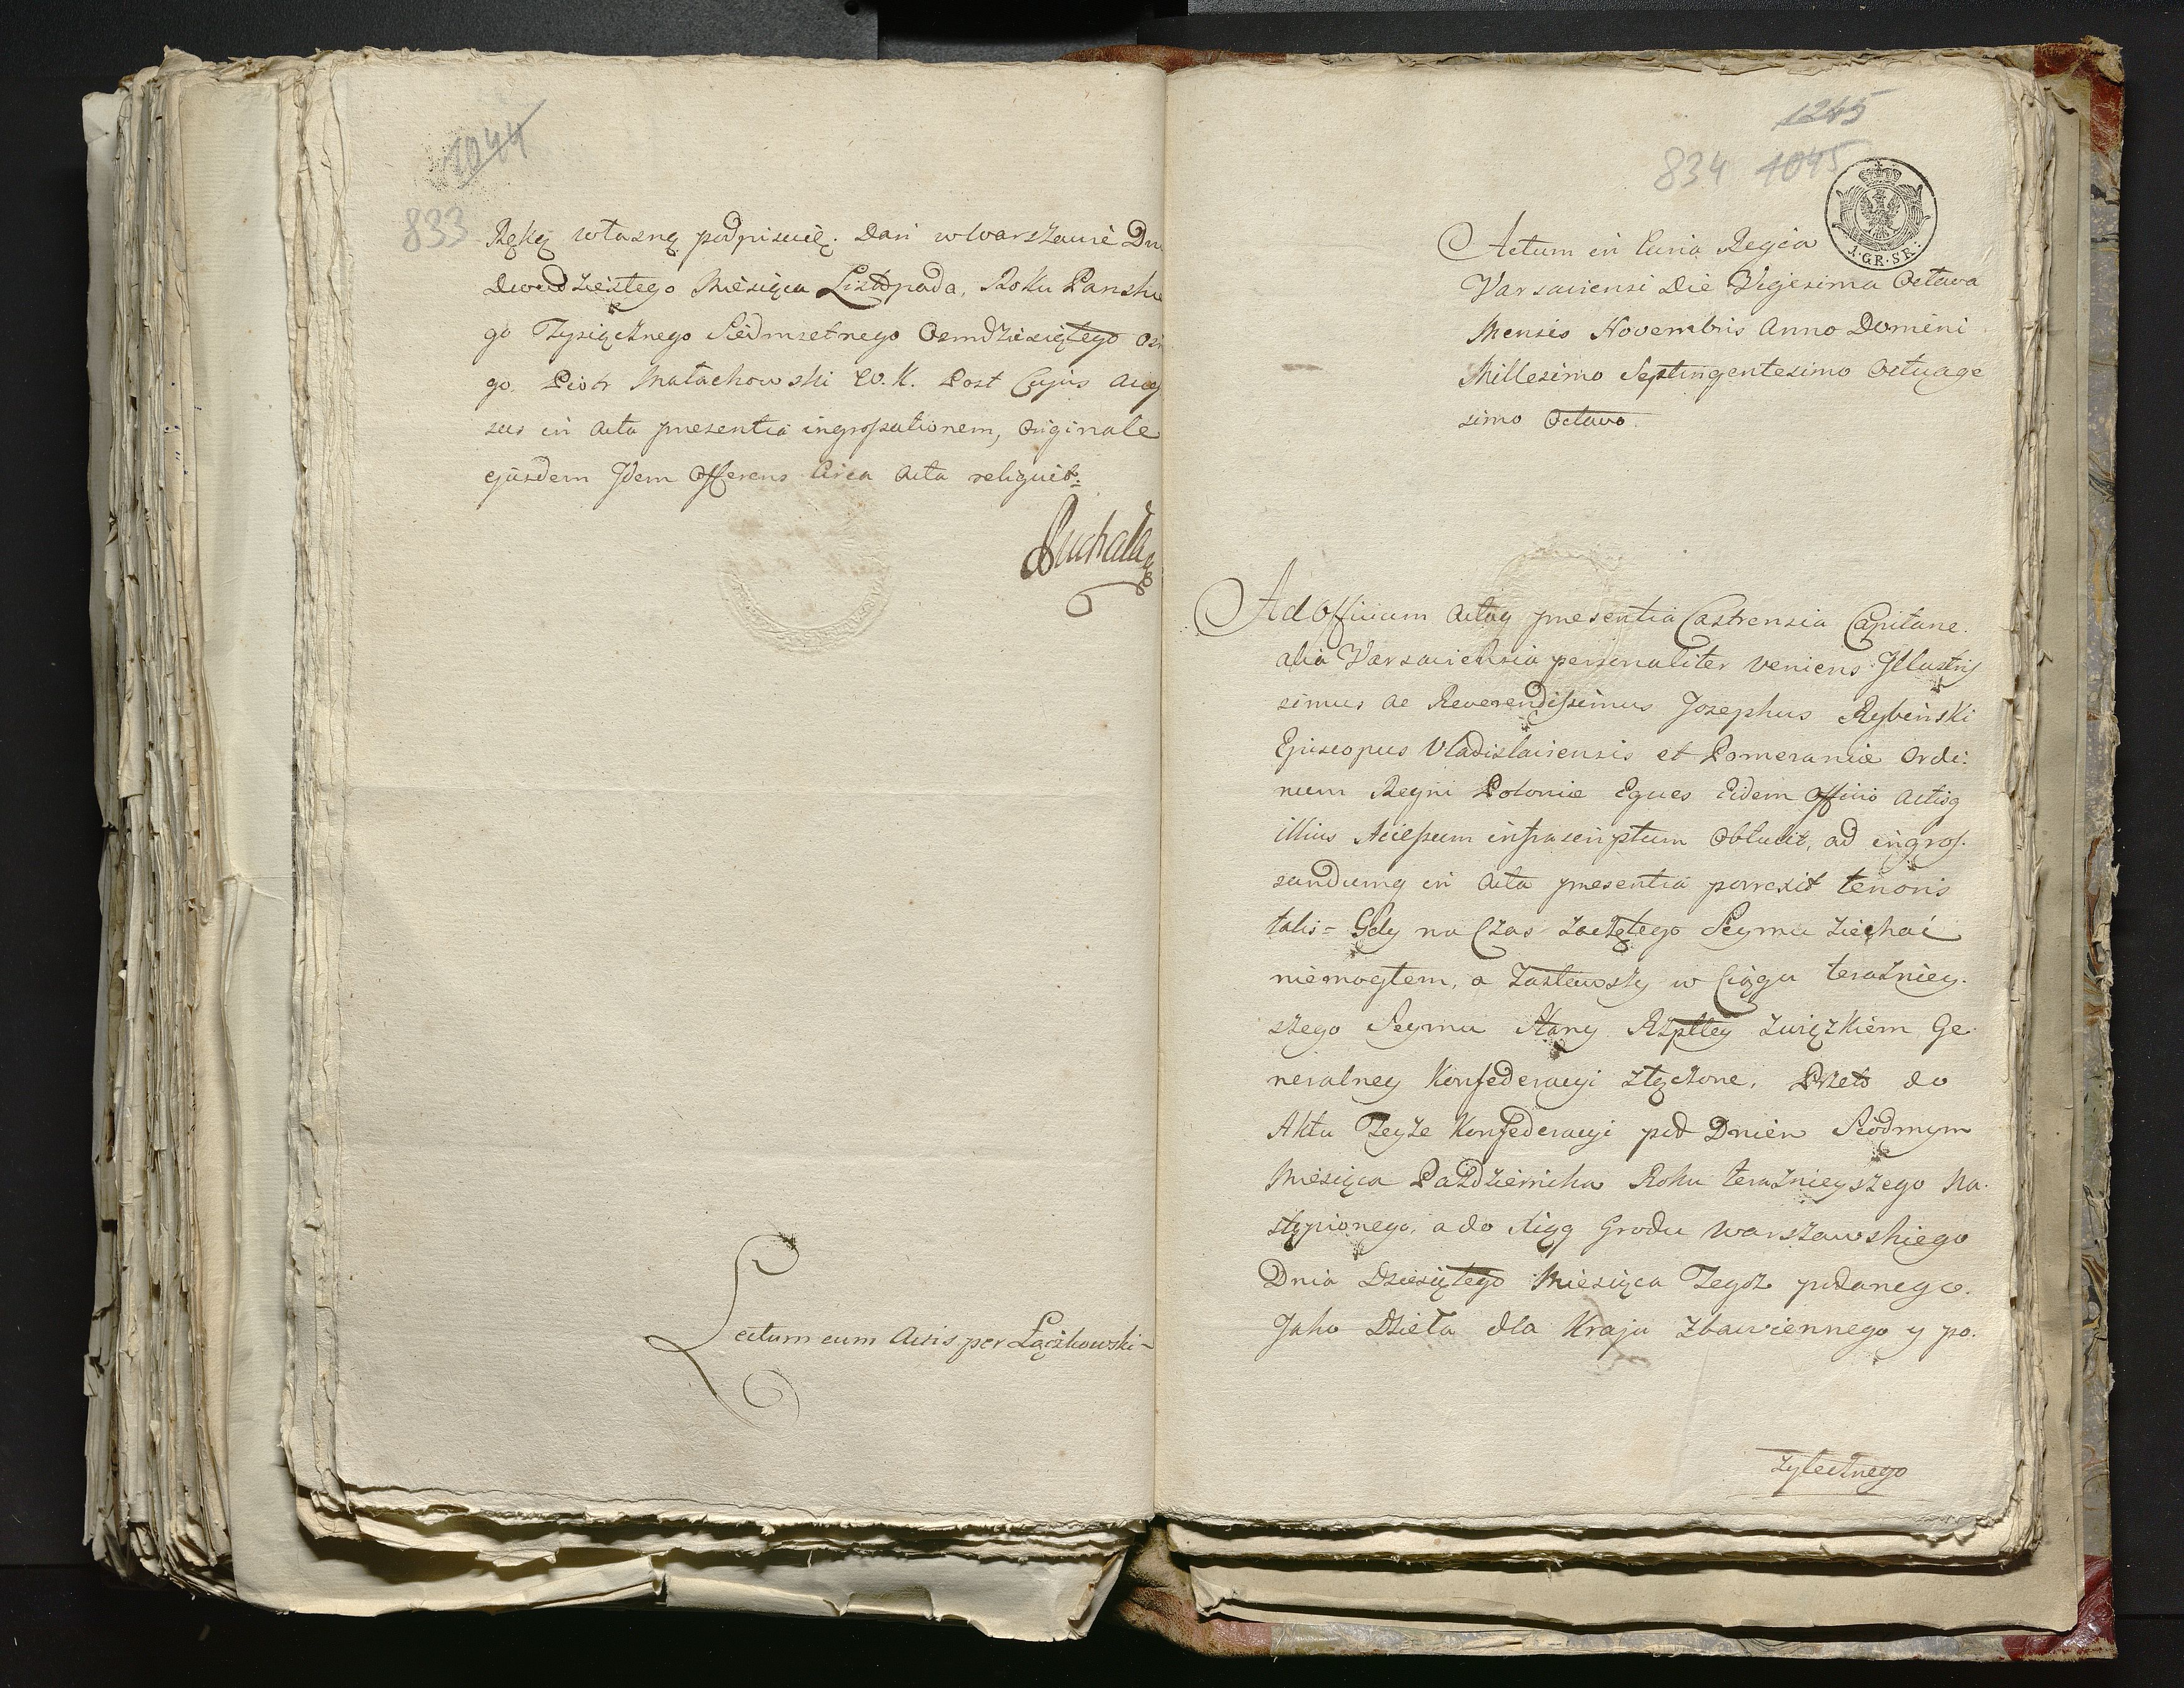 1044
833
Ręką własną podpisuię. Dan w Warszawie Dn
dwudziestego Miesiąca Listopada, Roku Panskie
go Tysiącznego Siedmsetnego Osmdziesiątego Os
go Piotr Małachowski W. K. Post Cujus
sus in Acta presentia ingrossationem, Originale
ejusdem Idem Offerens Circa Acta reliquit.
Lectum cum Actis per Łączkowski
1245
834 1045
1. GR. SR.
Actum in Curia Regia
Varsaviensi Die Vigesima Octava
Mensis Novembris Anno Domini
Millesimo Septingentesimo Octuage
simo Octavo.
Ad Officium Actaq presentia Castrensia Capitane.
alia Varsaviensia personaliter veniens Illustris
simus ac Reverendissimus Josephus Rybiński
Episcopus Vladislaviensis et Pomeraniæ Ordi:
num Regni Poloniæ Eques Eidem Officio Actisq
illius Accessum infrascriptum Obtulit, ad ingros.
sandumq in Acta presentia porrexit tenoris
talis = Gdy na Czas zaczętego Seymu ziechać
niemogłem, a Zastawszy w Ciągu teraźniey.
szego Seymu Stany Rzpltey związkiem Ge
neralney Konfederacyi złączone, Przeto do
Aktu Teyże Konfederacyi pod Dniem Siódmym
Miesiąca Października Roku teraźnieyszego Na.
stąpionego, a do Xiąg Grodu Warszawskiego
Dnia Dziesiątego Miesiąca Tegoż podanego.
Jako Dzieła dla Kraju Zbawiennego y po.
żytecznego